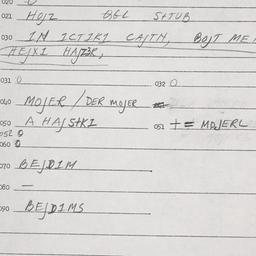 020
021 HOJZ GGL S+TUB
030 IN ICTIKI CAJTN, BOJT ME
HEJXI HAJTBK,
031 O 032 O
040 MOJER / DER MOJER
050 A HAJS+KI 051 += MOJERL
052 O
060 O
070 BEJDIM
080 —
090 BEJDIMS